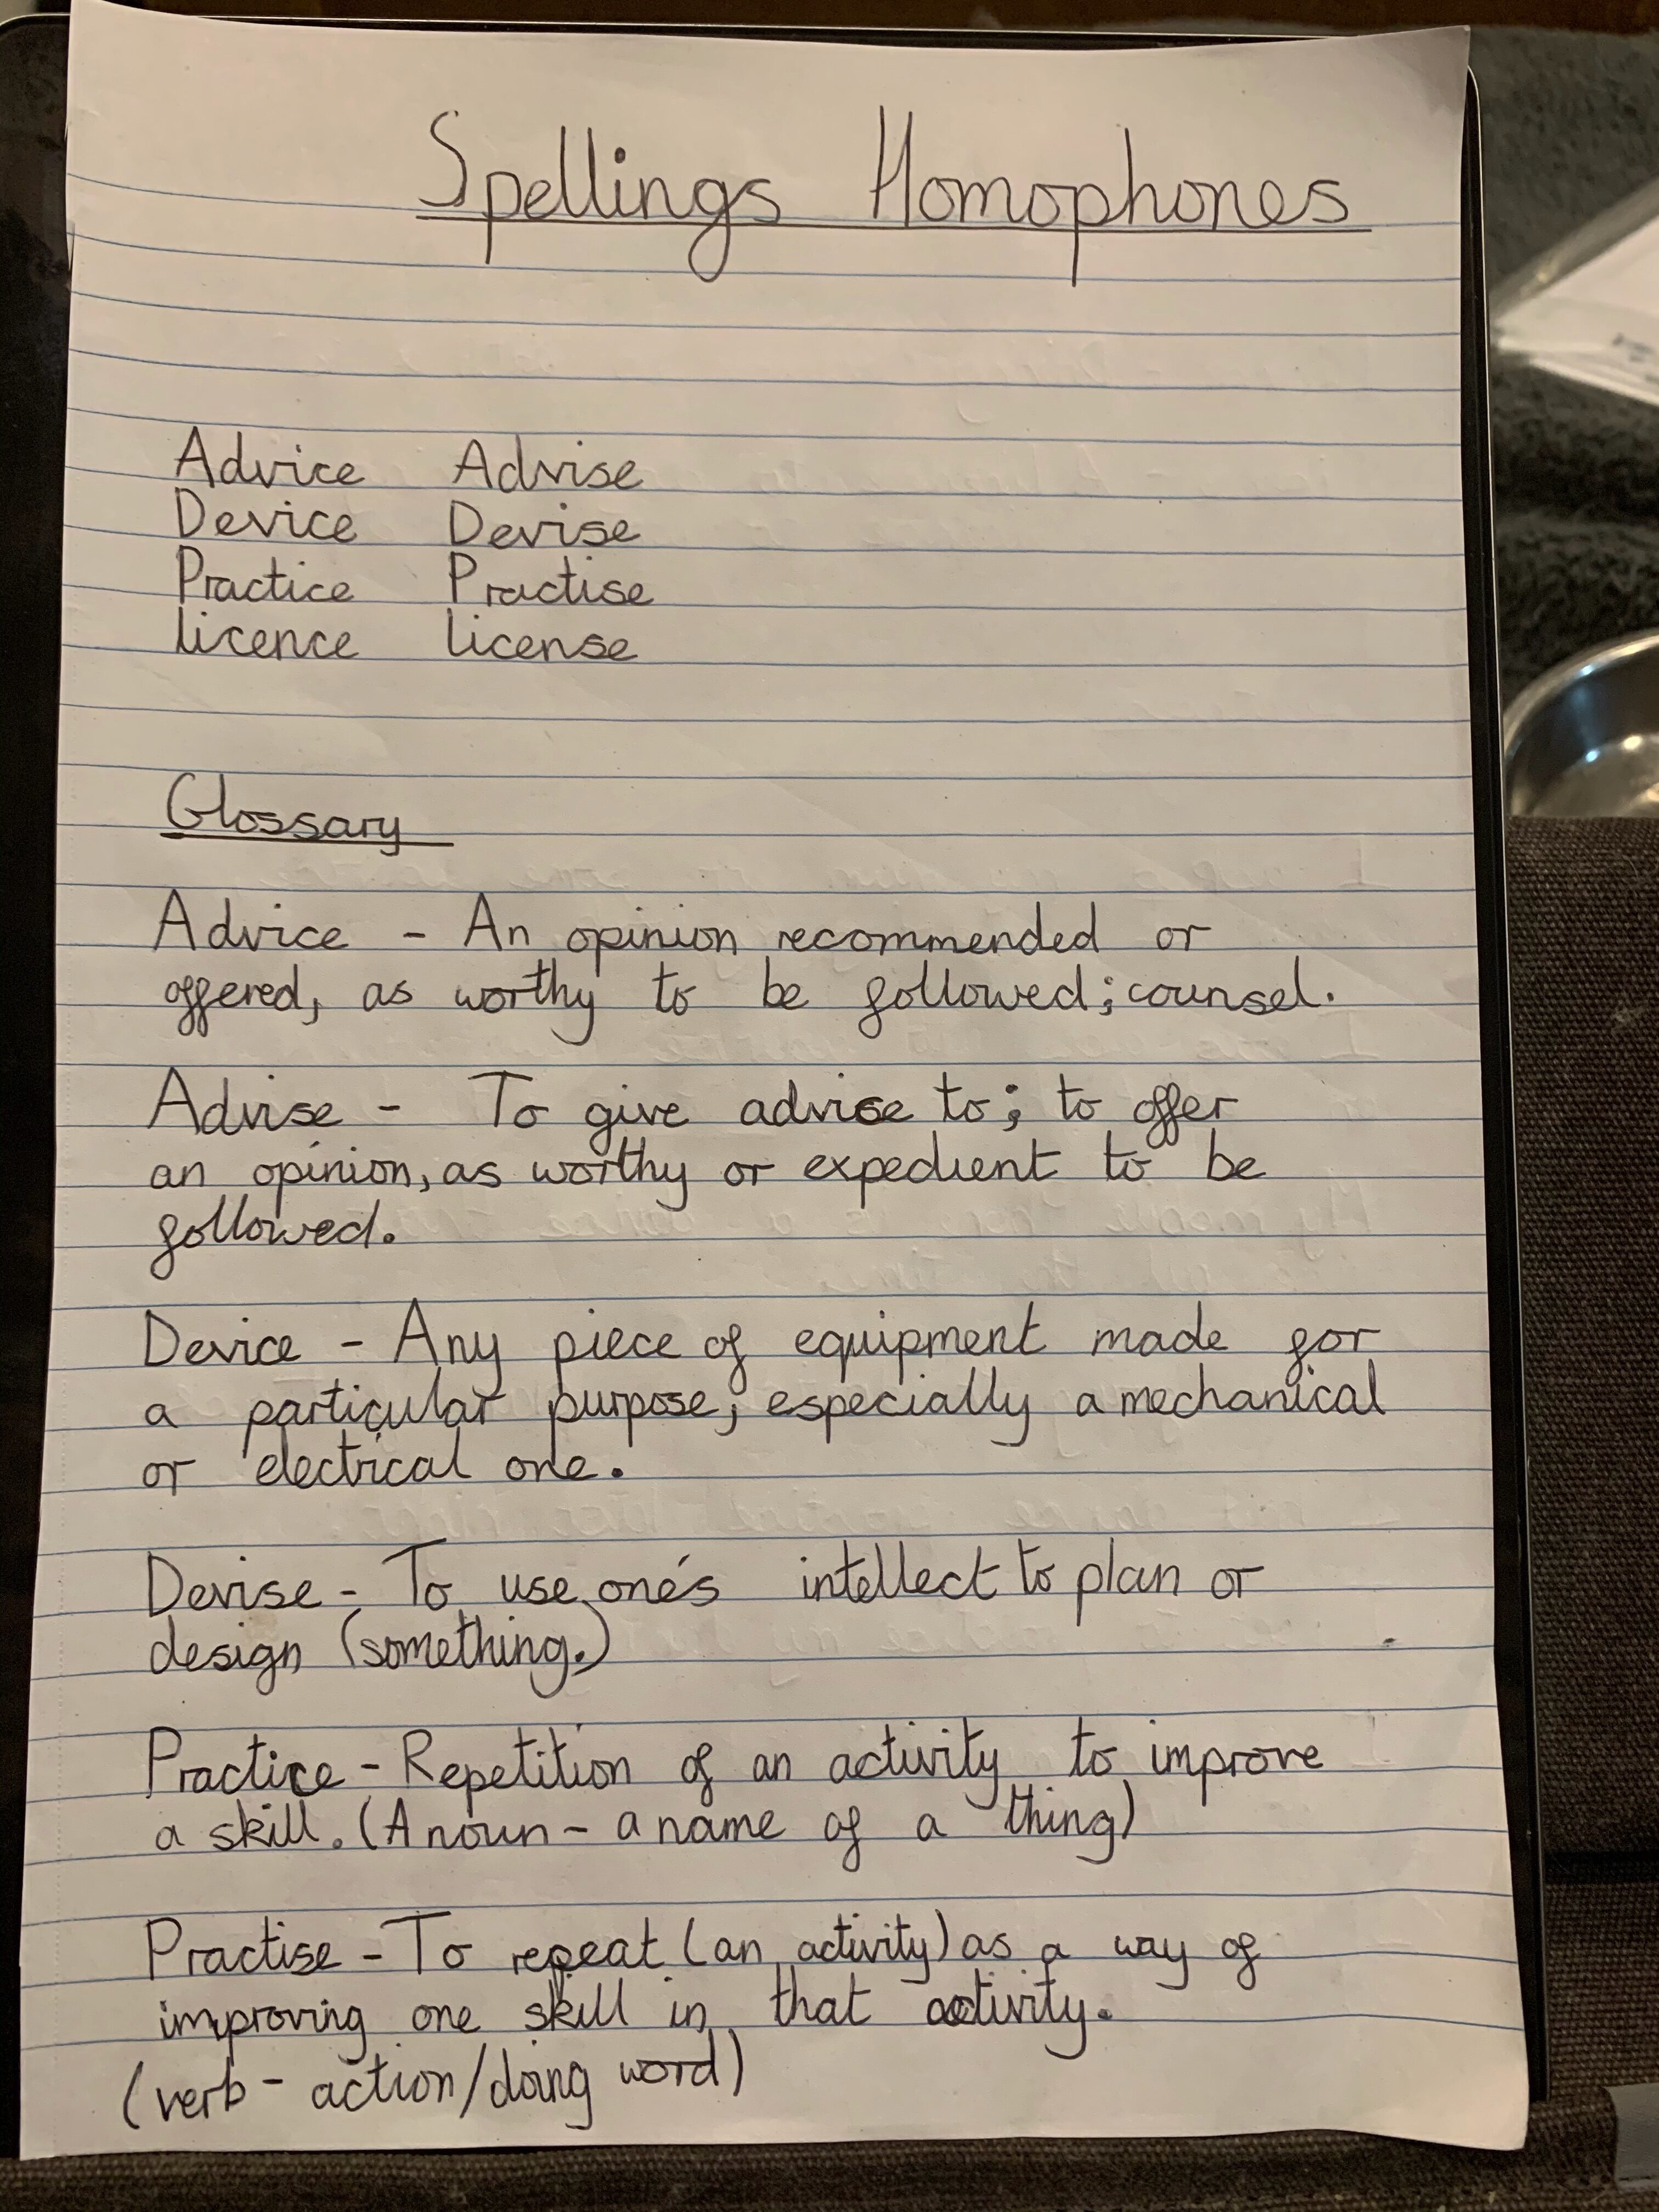 Spellings Homophones
Advice Advise
Device Devise
Practice Practise
licence license
Glossary
Advice - An opinion recommended or
offered, as worthy to be followed; counsel.
Advise - To give advice to; to offer
an opinion, as worthy or expedient to be
followed.
Device - Any piece of equipment made for
a particular purpose, especially a mechanical
or electrical one.
Devise - To use one's intellect to plan or
design (something.)
Practice - Repetition of an activity to improve
a skill. (A noun - a name of a thing)
Practise - To repeat (an activity) as a way of
improving one skill in that activity.
(verb - action/doing word)